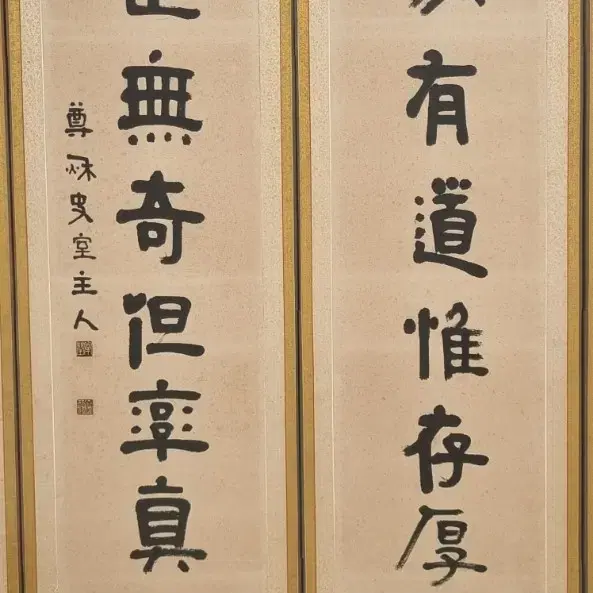 有道惟存厚
無奇但率真
尊 室主人